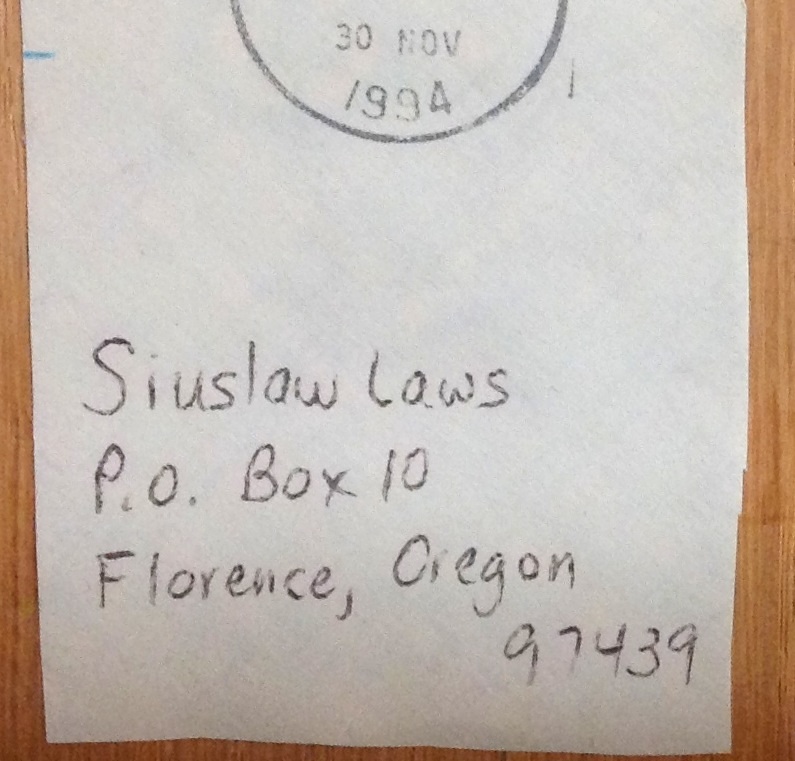 30 NOV
1994
Siuslaw Laws
P.O. Box 10
Florence, Oregon
97439